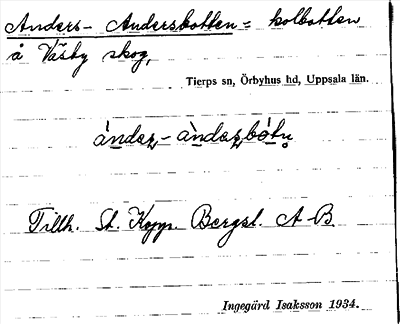 Anders-Andersbotten = kolbotten
å Väsby skog,
Tierps sn, Örbyhus hd, Uppsala län.
Tillh. St. Kopp. Bergsl. A-B.
Ingegärd Isaksson 1934.